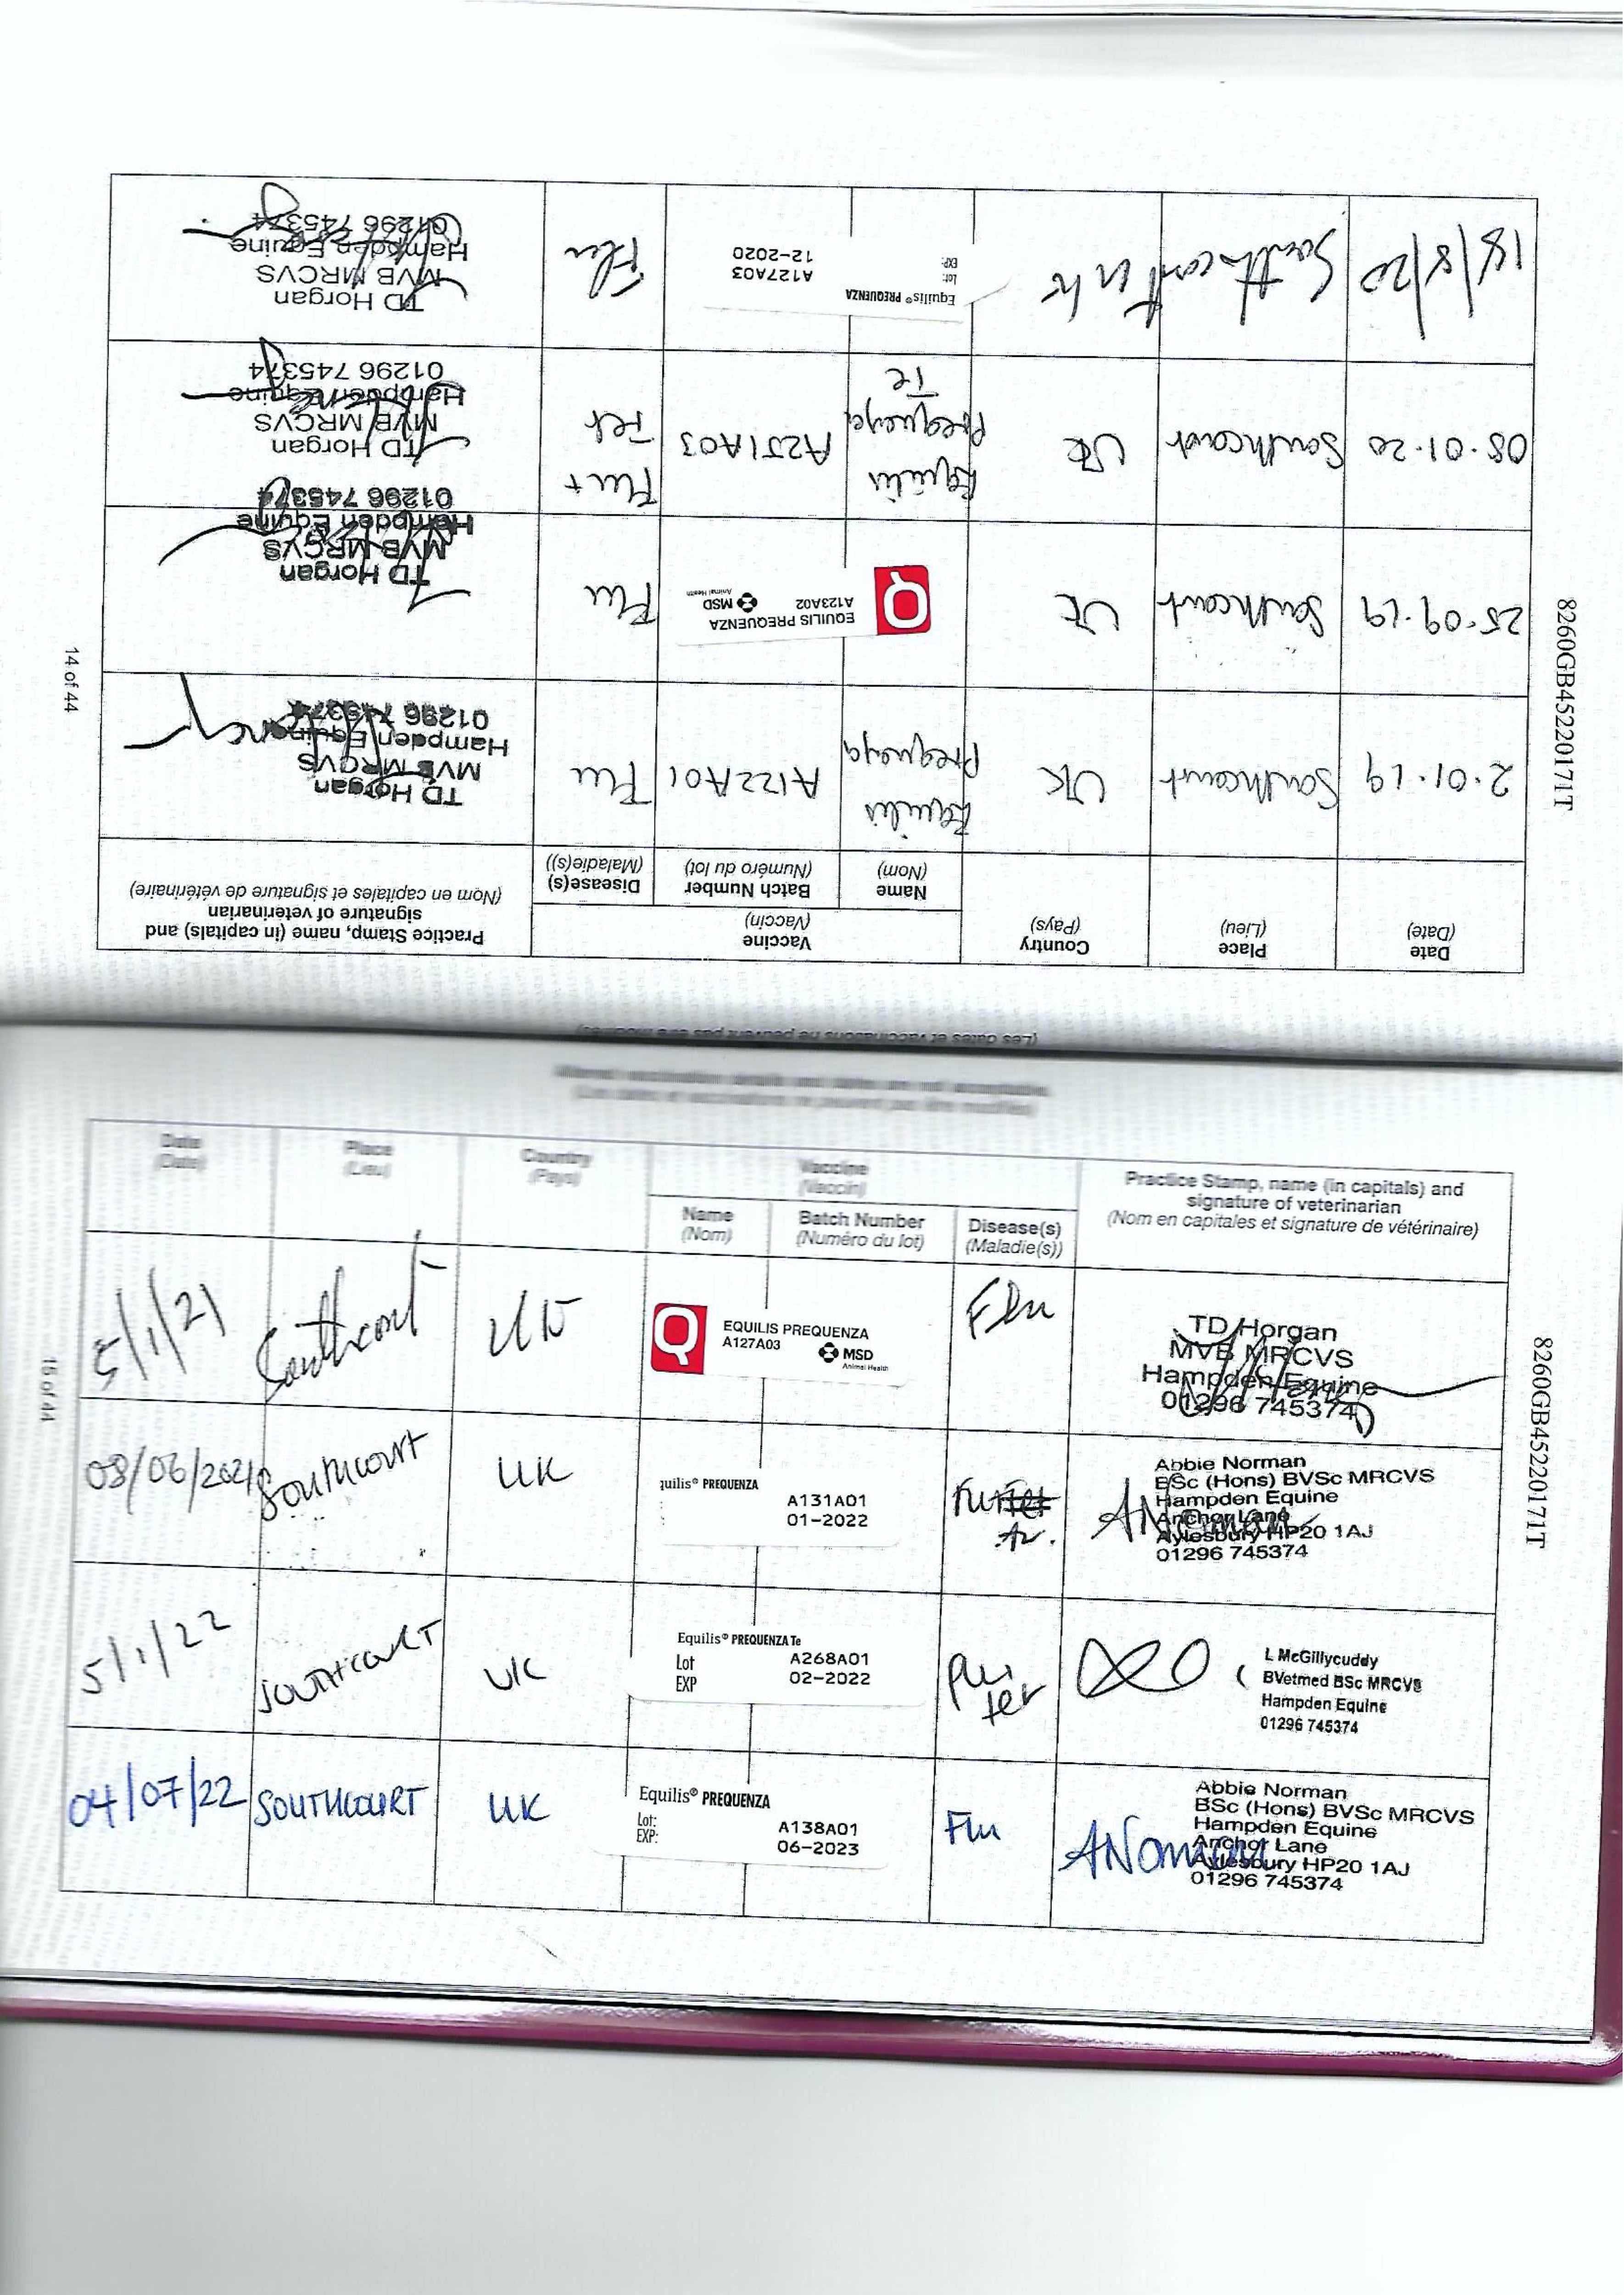 Date
(Date)
Place
(Lieu)
Country
(Pays)
Vaccine
(Vaccin)
Name
(Nom)
Batch Number
(Numéro du lot)
Disease(s)
(Maladie(s))
Practice Stamp, name (in capitals) and
signature of veterinarian
(Nom en capitales et signature de vétérinaire)
2.01.19
Southcourt
UK
Equilis
Prequenza
A122A01
Flu
TD Horgan
MVB MRCVS
Hampden Equine
01296 745374
25.09.19
Southcourt
UK
EQUILIS PREQUENZA
A123A02
MSD
Animal Health
Flu
TD Horgan
MVB MRCVS
Hampden Equine
01296 745374
08.01.20
Southcourt
UK
Equilis
Prequenza
Te
A251A03
Flu +
Tet
TD Horgan
MVB MRCVS
Hampden Equine
01296 745374
18/8/20
Southcourt
UK
Equilis® PREQUENZA
Lot:
EXP:
A127A03
12-2020
Flu
TD Horgan
MVB MRCVS
Hampden Equine
01296 745374
14 of 44
8260GB45220171T
(Les dates et vaccinations ne peuvent pas être modifiés)
Date
(Date)
Place
(Lieu)
Country
(Pays)
Vaccine
(Vaccin)
Name
(Nom)
Batch Number
(Numéro du lot)
Disease(s)
(Maladie(s))
Practice Stamp, name (in capitals) and
signature of veterinarian
(Nom en capitales et signature de vétérinaire)
5/1/21
Southcourt
UK
Q
EQUILIS PREQUENZA
A127A03
MSD
Animal Health
Flu
TD Horgan
MVB MRCVS
Hampden Equine
01296 745374
08/06/2021
SOUTHCOURT
UK
quilis® PREQUENZA
A131A01
01-2022
Abbie Norman
BSc (Hons) BVSc MRCVS
Hampden Equine
Anchor Lane
Aylesbury HP20 1AJ
01296 745374
5/1/22
SOUTHCOURT
UK
Equilis® PREQUENZA Te
Lot A268A01
EXP 02-2022
Flu
Tet
L McGillycuddy
BVetmed BSc MRCVS
Hampden Equine
01296 745374
04/07/22
SOUTHCOURT
UK
Equilis® PREQUENZA
Lot: A138A01
EXP: 06-2023
Flu
ANorman
Abbie Norman
BSc (Hons) BVSc MRCVS
Hampden Equine
Anchor Lane
Aylesbury HP20 1AJ
01296 745374
15 of 44
8260GB45220171T